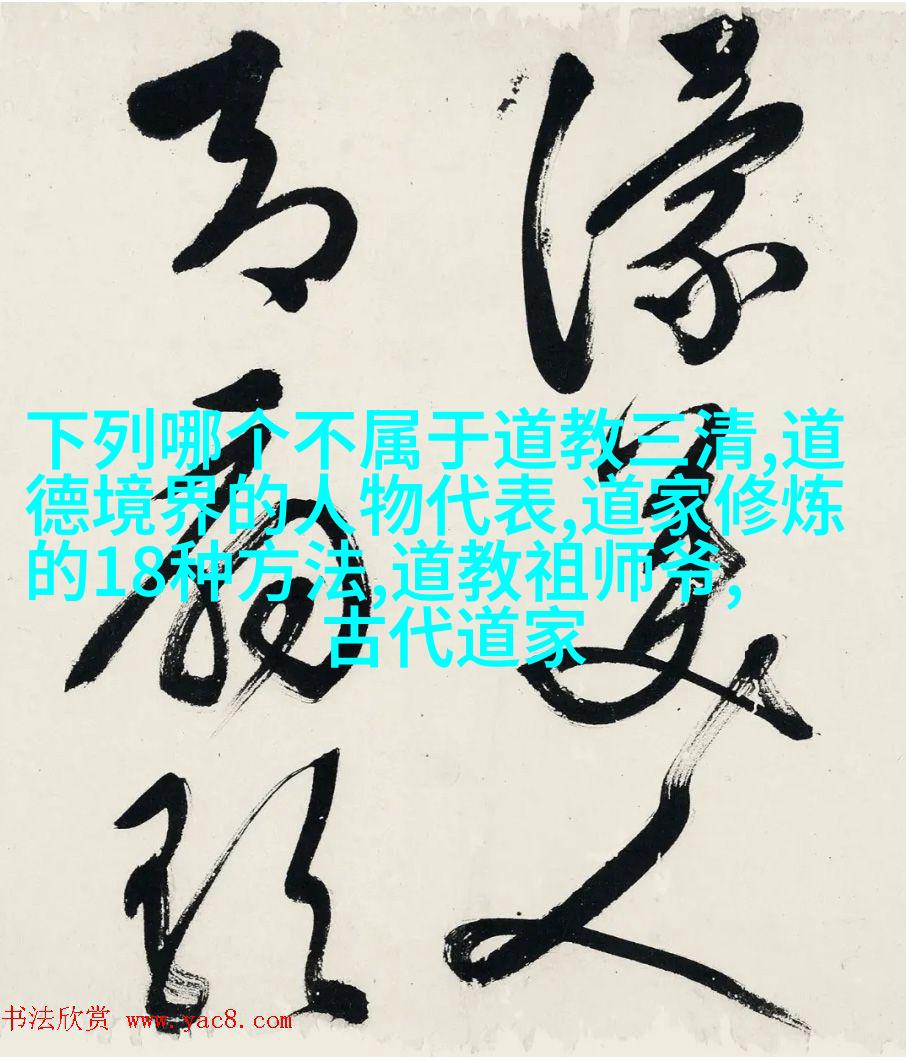 濛美人
下列哪个不属于道教三清,道
德境界的人物代表,道家修炼
的18种方法,道教祖师爷,
古代道家
书法欣赏 www.yac8.com